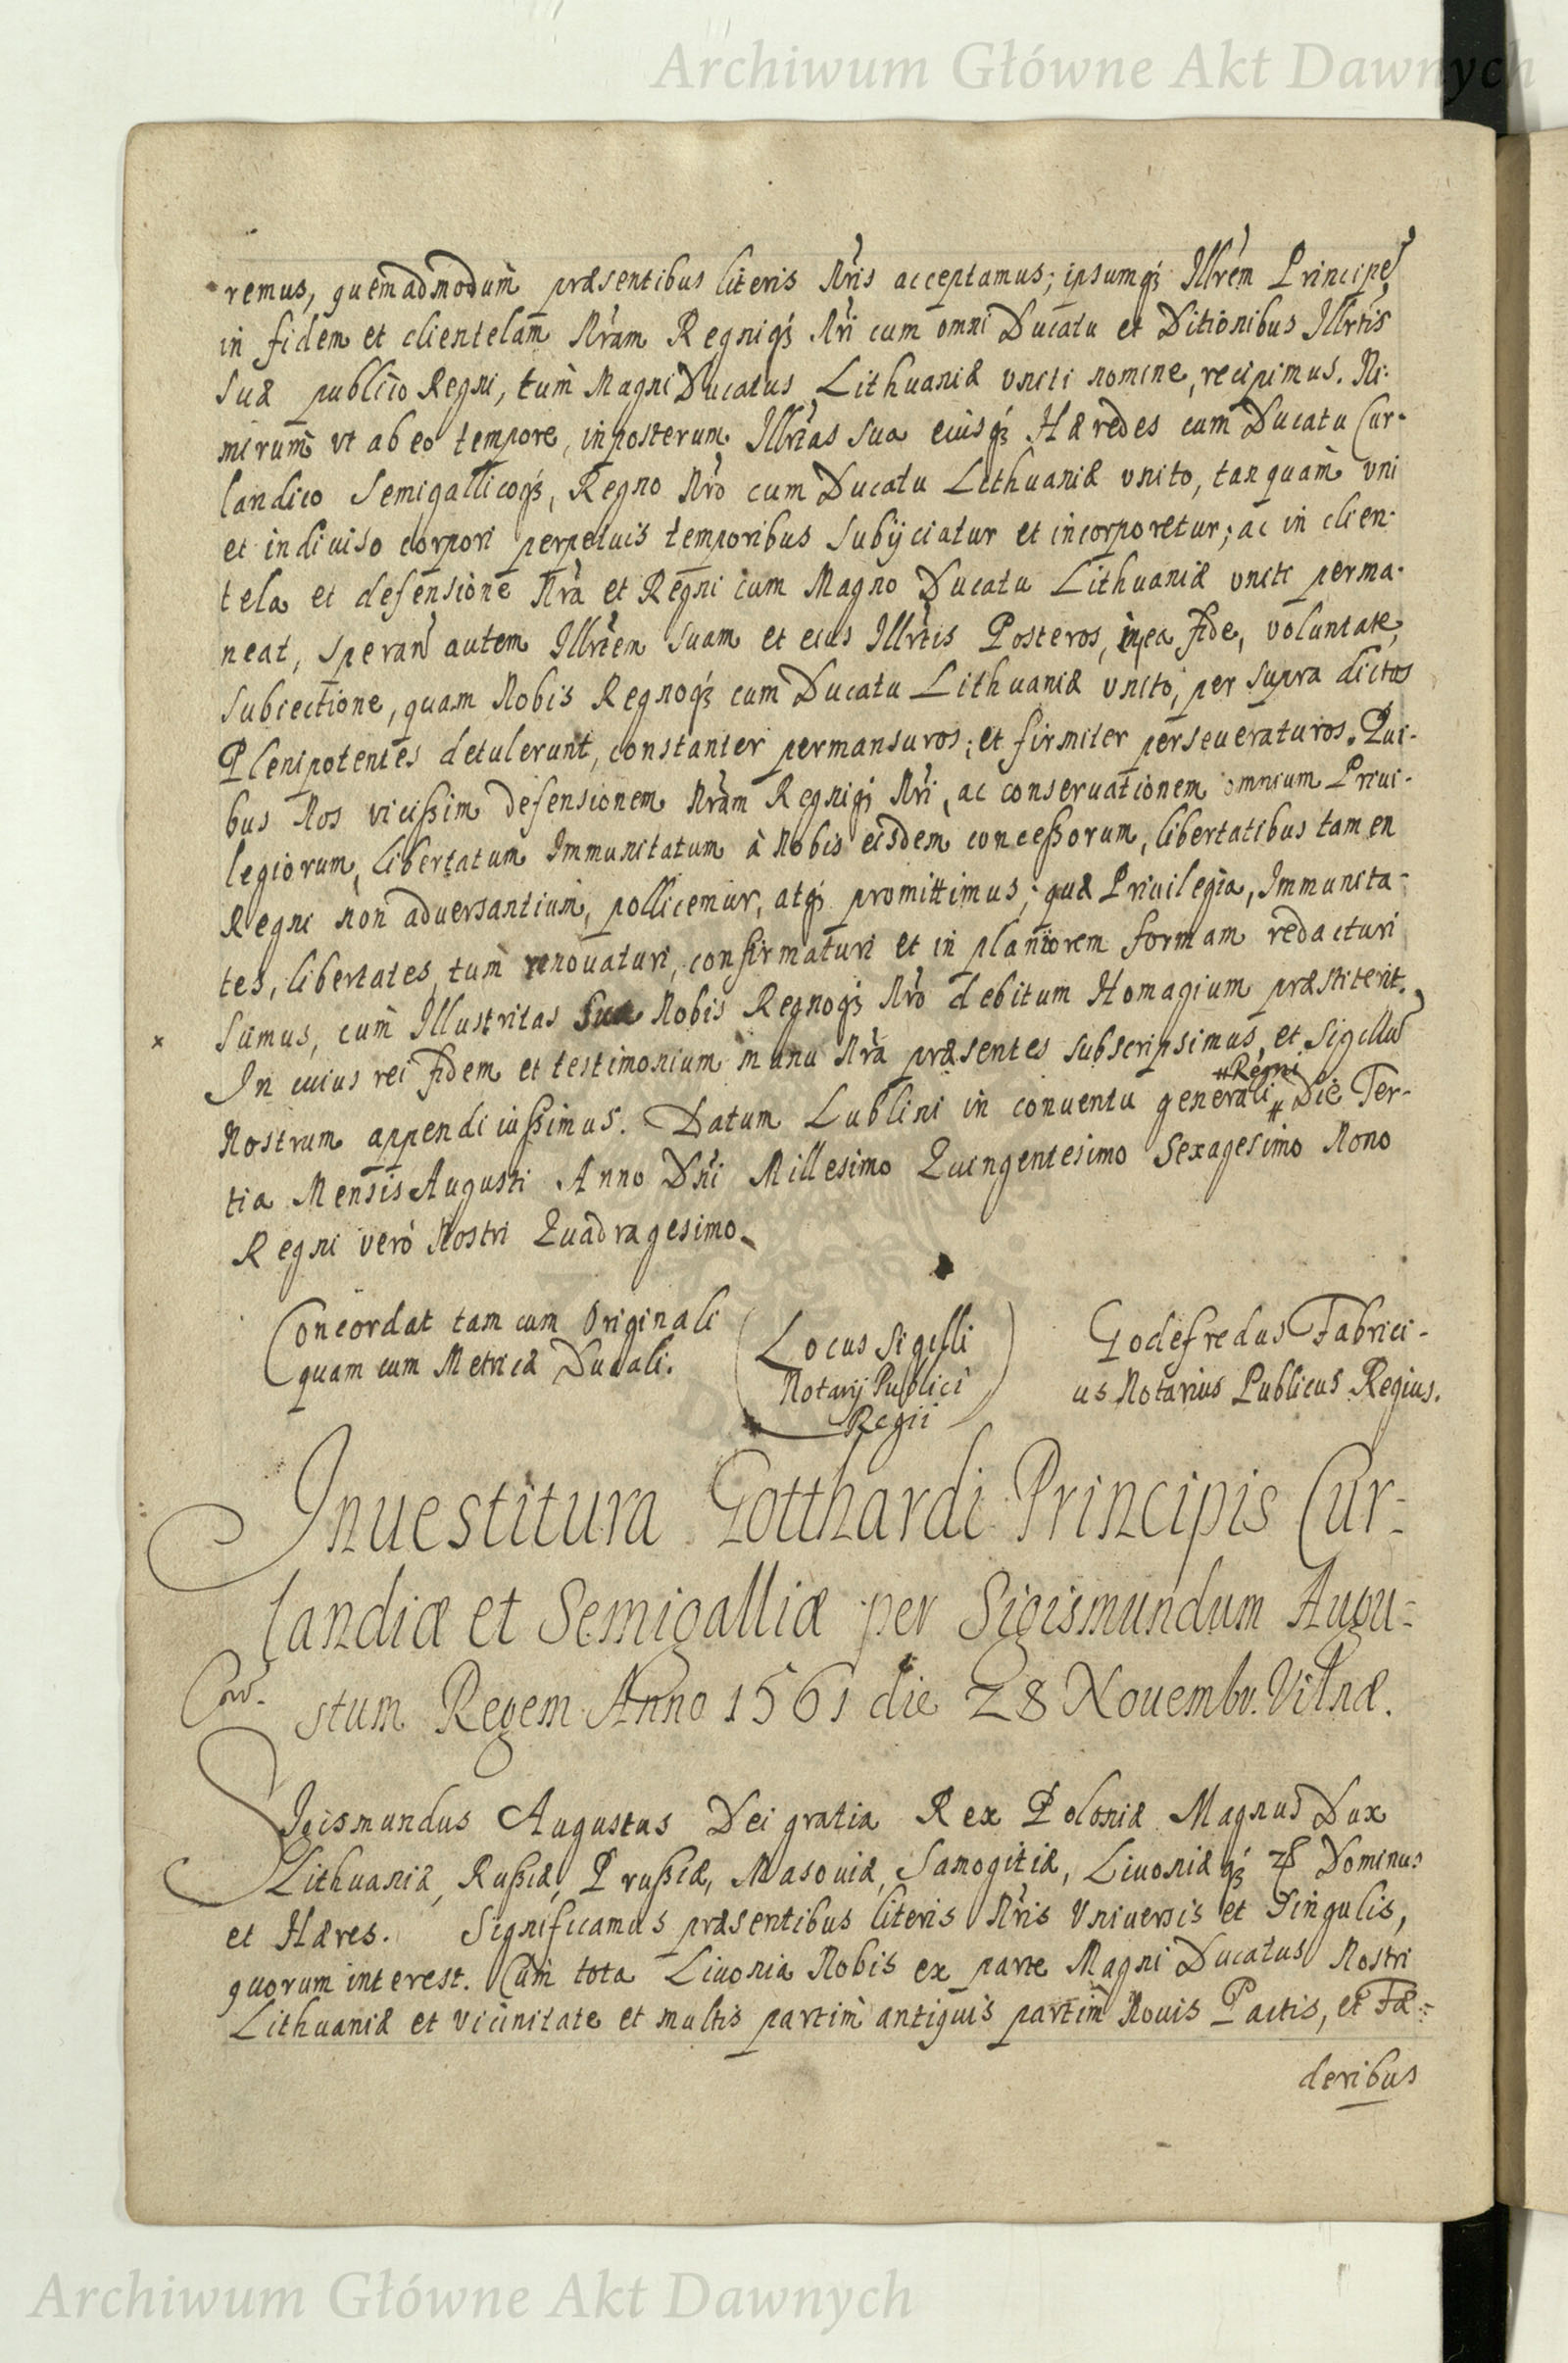 Archiwum Główne Akt Dawnych
remus, quemadmodum præsentibus literis Nris acceptamus; ipsumq́ Illrem Principe
in fidem et clientelam Nram Regniq́ Nri cum omni Ducatu et Ditionibus Illrtis
suæ publico Regni, tum Magni Ducatus Lithuaniæ vniti nomine, recipimus. Ni-
mirum vt ab eo tempore, inposterum Illrtas sua eiusq́ Hæredes cum Ducatu Cur-
landico Semigallicoq́, Regno Nro cum Ducatu Lithuaniæ vnito, tanquam vni
et indiuiso corpori perpetuis temporibus subijciatur et incorporetur; ac in clien-
tela et defensione Nra et Regni cum Magno Ducatu Lithuaniæ vniti perma-
neat, speran autem Illrtem suam et eius Illrtis Posteros, in ea fide, voluntate,
subiectione, quam Nobis Regnoq́ cum Ducatu Lithuaniæ vnito, per supra dictos
Plenipotentes detulerunt, constanter permansuros; et firmiter perseueraturos. Qui-
bus Nos vicißim defensionem Nram Regniq́ Nri, ac conseruationem omnium Priui-
legiorum, libertatum Immunitatum à Nobis eisdem conceßorum, libertatibus tamen
Regni non aduersantium, pollicemur, atq́ promittimus; quæ Priuilegia, Immunita-
tes, libertates, tum renouaturi, confirmaturi et in planiorem formam redacturi
x sumus, cum Illustritas Sua Nobis Regnoq́ Nro debitum Homagium præstiterit.
In cuius rei fidem et testimonium manu Nra præsentes subscripsimus, et Sigillu
# Regni
Nostrum appendi iußimus. Datum Lublini in conuentu generali # Die Ter-
tia Mensis Augusti Anno Dni Millesimo Quingentesimo Sexagesimo Nono
Regni verò Nostri Quadragesimo.
Concordat tam cum Originali
quam cum Metrica Ducali.
(Locus Sigilli
Notarij Publici
Regii)
Godefredus Fabrici-
us Notarius Publicus Regius.
Inuestitura Gotthardi Principis Cur-
landiæ et Semigalliæ per Sigismundum Augu-
stum Regem Anno 1561 die 28 Nouembr. Vilnæ.
Sigismundus Augustus Dei gratia Rex Poloniæ Magnus Dux
Lithuaniæ, Rußiæ, Prußiæ, Masouiæ, Samogitiæ, Liuoniæq́ Dominus
et Hæres. Significamus præsentibus literis Nris Vniuersis et Singulis,
quorum interest. Cum tota Liuonia Nobis ex parte Magni Ducatus Nostri
Lithuaniæ et vicinitate et multis partim antiquis partim Nouis Pactis, et Fæ-
deribus
Archiwum Główne Akt Dawnych